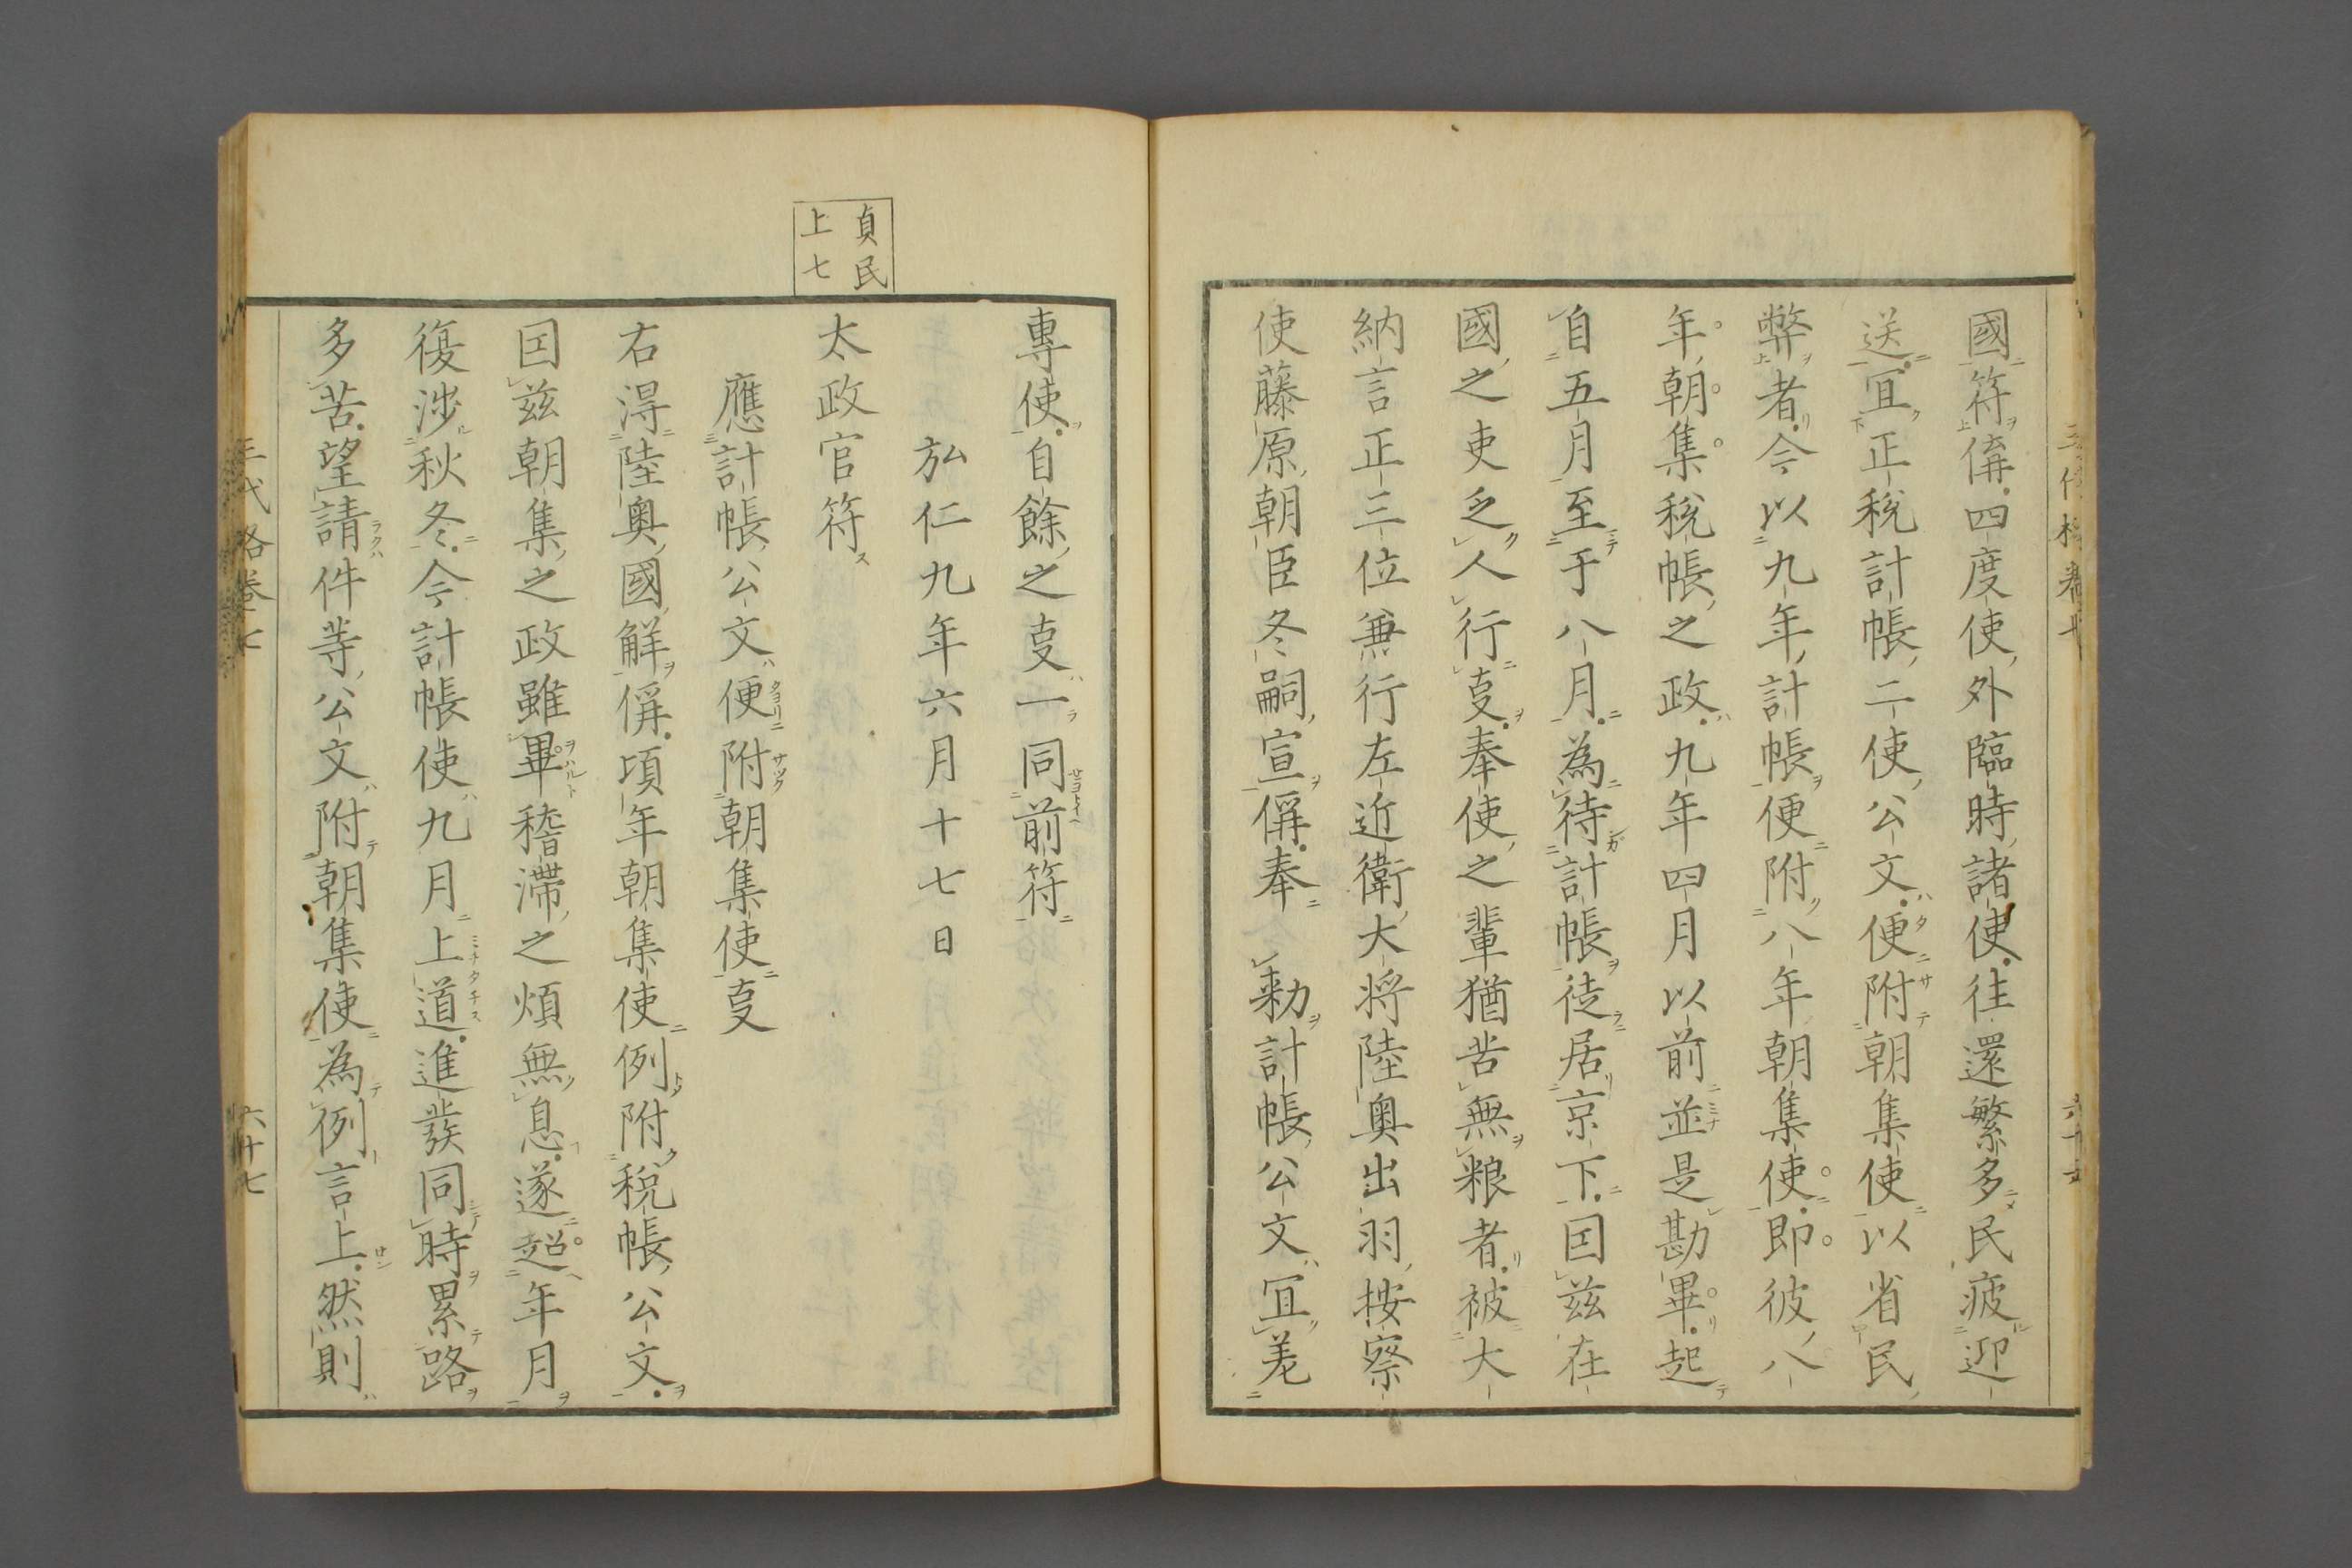 國符偁四度使外臨時諸使往還繁多民疲迎
送冝正税計帳二使公文便附朝集使以省民
弊者今以九年計帳便附八年朝集使即彼八
年朝集税帳之政九年四月以前並是勘畢起
自五月至于八月為待計帳徒居京下因兹在
國之吏乏人行㕝奉使之輩猶苦無粮者被大
納言正三位兼行左近衛大将陸奥出羽按察
使藤原朝臣冬嗣宣偁奉　勅計帳公文冝差
專使自餘之㕝一同前符
弘仁九年六月十七日
貞民
上七
太政官符
應計帳公文便附朝集使㕝
右得陸奥國解偁頃年朝集使例附税帳公文
因兹朝集之政雖畢稽滞之煩無息遂超年月
復渉秋冬今計帳使九月上道進發同時累路
多苦望請件等公文附朝集使為例言上然則
三代格巻七
六十七